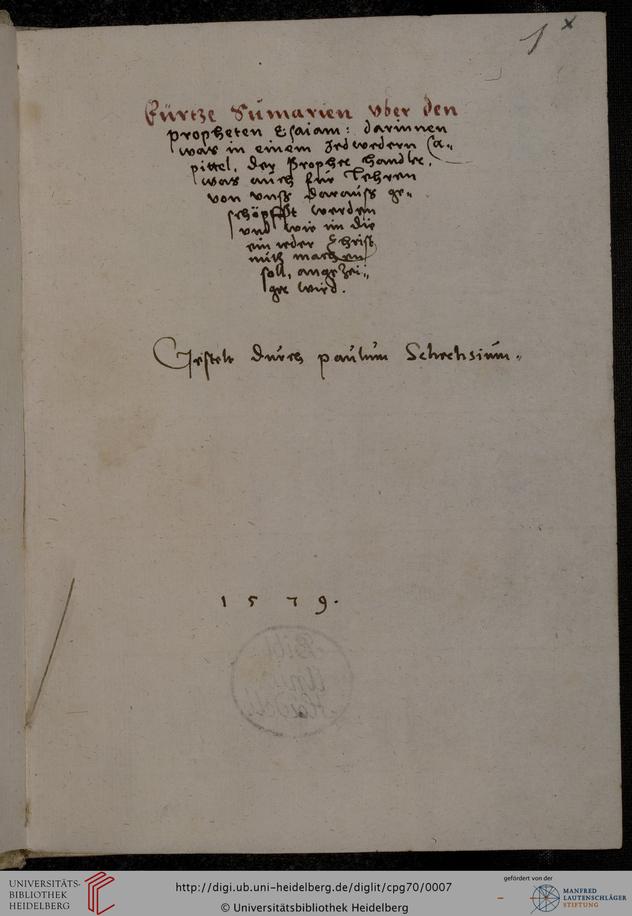 1 x
Kürtze Sumarien vber den
propheten Esaiam: darinnen
was in einem jedwedern Ca-
pittel, der Prophet handle,
was auch für Lehren
von vnß darauß ge-
schöpfft werden
vnd wie im die
ein ieder Christ
nütz machen
soll, angezei-
get wird.
Gestelt durch paulum Schechsium.
1579.
Bibl.
Univ.
Heidelb.
UNIVERSITÄTS-
BIBLIOTHEK
HEIDELBERG
http://digi.ub.uni-heidelberg.de/diglit/cpg70/0007
© Universitätsbibliothek Heidelberg
gefördert von der
MANFRED
LAUTENSCHLÄGER
STIFTUNG